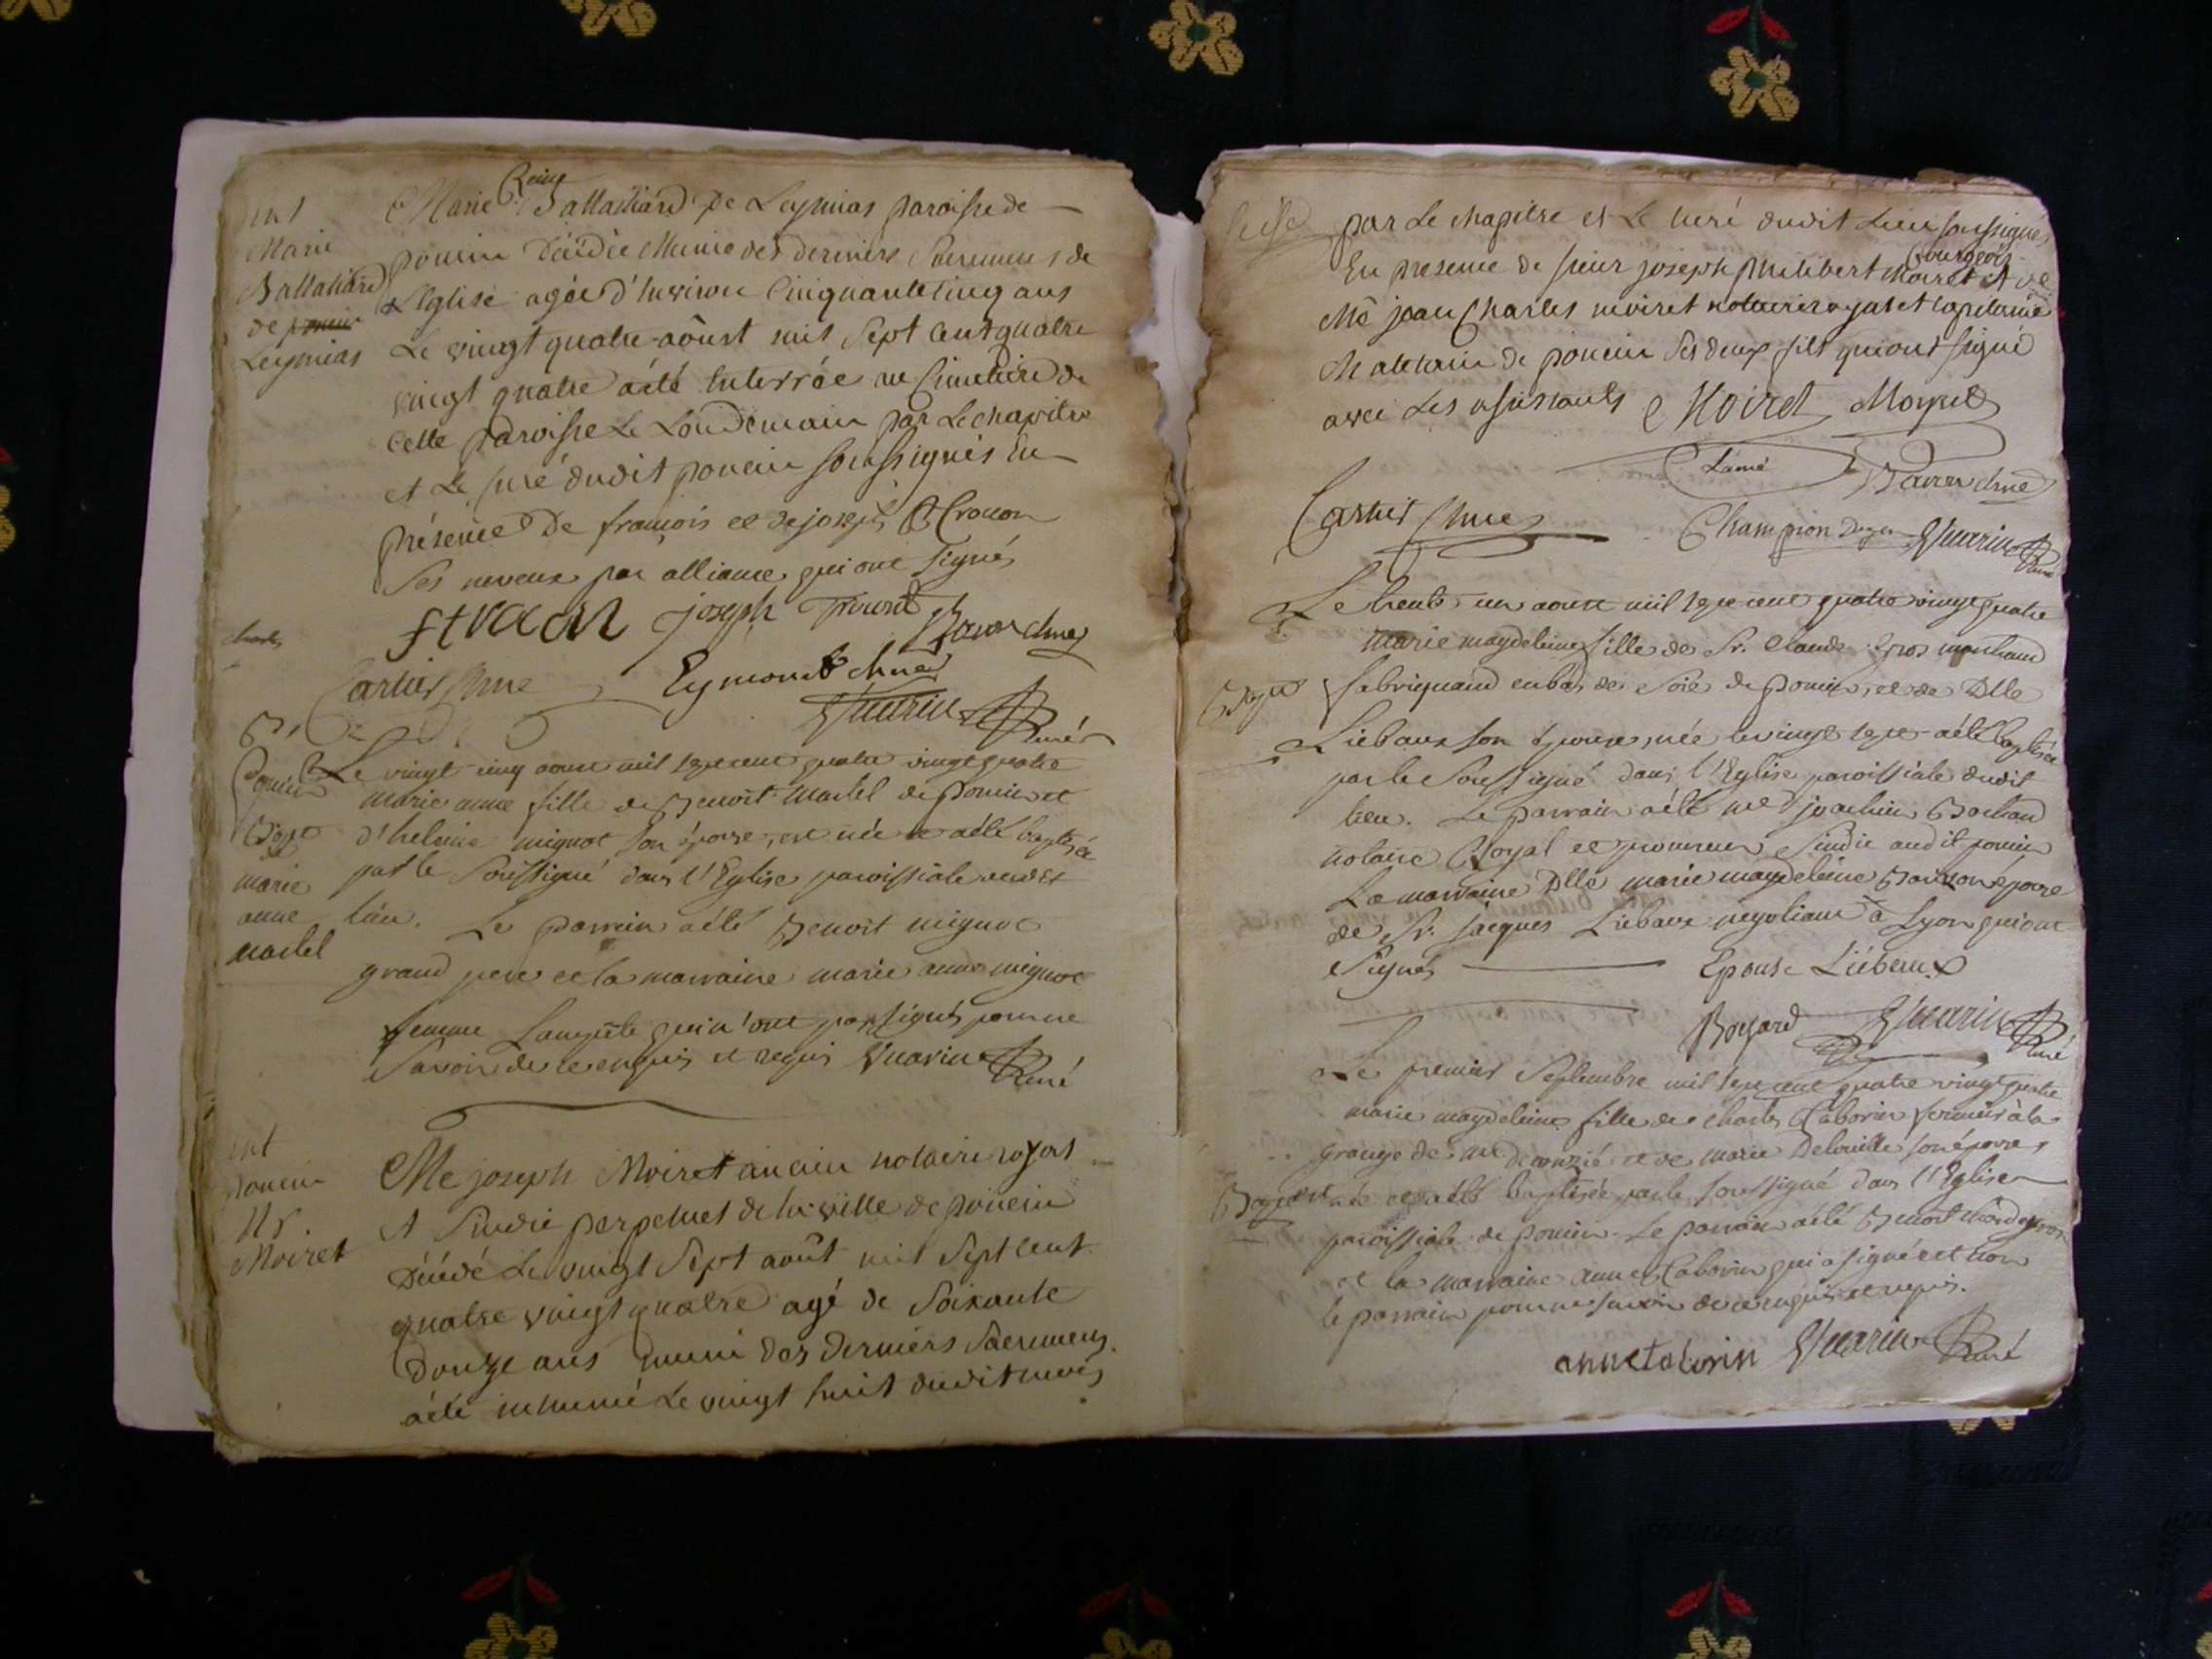 Marie Reine Ballathard de Leymias paroisse de
poncin décédée Munie des derniers Sacremens de
L'Eglise agée d'Environ Cinquante Cinq ans
Le vingt quatre aôust mil Sept Cent quatre
vingt quatre a été Enterrée au Cimetière de
Cette paroisse Le Lendemain par Le chapitre
et Le Curé dudit poncin soussignés En
présence De françois et de joseph
Ses neveux par alliance qui ont signés
joseph
Cartier Chne Eymond chne
Guarin Curé
Le vingt cinq aoust mil sept cent quatre vingt quatre
marie anne fille de Benoît Martel de Poncin et
d'helaine mignot son épouse, est née et a été baptisée
par le Soussigné dans l'Eglise paroissiale dudit
lieu. Le parrain a été Benoit mignot
grand pere et la marraine marie anne mignot
femme qui n'ont pas signés pour ne
Savoir de ce enquis et requis Guarin Curé
Me joseph Moiret ancien notaire royal
et Sindic perpetuel de la ville de poncin
Décédé Le vingt Sept août mil Sept Cent
quatre vingt quatre agé de Soixante
Douze ans muni des Derniers Sacremens
a été inhumé Le vingt huit dudit mois
ent
Marie
Ballathard
de poncin
Leymias
Poncin
Bapt
marie
anne
Martel
ent
poncin
Mr.
Moiret
par Le chapitre et Le Curé dudit Lieu soussignés
En presence de sieur joseph philibert Moiret Bourgeois et de
Me jean Charles moiret notaire royal et capitaine
Chatelain de poncin Ses deux fils qui ont signé
avec Les assistants Moiret Moyret
L'ainé
Cartier Chne Champion Doyen Guarin Curé
Le trente un aoust mil sept cent quatre vingt quatre
marie magdeleine fille de Sr. Claude Gros marchand
fabriquand en bas de Soie de poncin, et de Dlle
Liebaux son épouse, née le vingt sept a été baptisée
par le Soussigné dans l'Eglise paroissiale dudit
lieu. Le parrain a été me joachim Bochard
notaire Royal et procureur Sindic audit poncin
La marraine Dlle marie magdeleine épouse
de Sr. jacques Liebaux negotiant à Lyon qui ont
Signés Epouse Liebaux
Guarin Curé
Le premier Septembre mil sept cent quatre vingt quatre
marie magdeleine fille de charles Taborin fermier à la
grange de et de marie son épouse
est née et a été baptisée par le soussigné dans l'Eglise
paroissiale de poncin. Le parrain a été Benoit
et la marraine anne Taborin qui a signé et non
le parrain pour ne savoir de ce enquis et requis.
anne taborin Guarin Curé
Bapt
Bapt